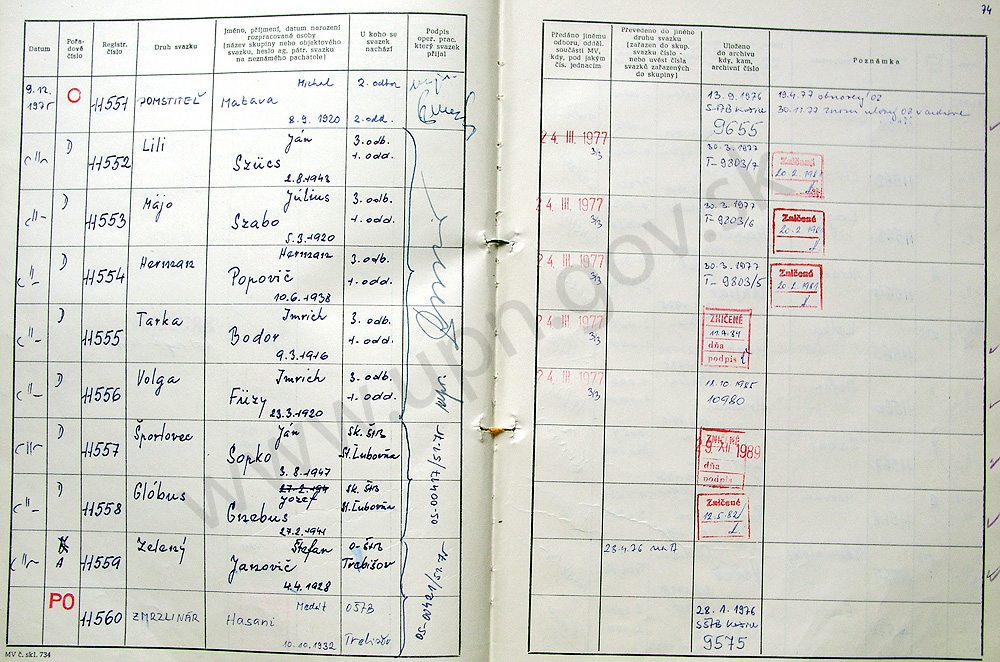 74
Datum
Pořadové číslo
Registr. číslo
Druh svazku
Jméno, příjmení, datum narození
rozpracované osoby
(název skupiny nebo objektového
svazku, heslo ag. pátr. svazku
na neznámého pachatele)
U koho se
svazek
nachází
Podpis
oper. prac.
který svazek
přijal
Předáno jinému
odboru, odděl.
součásti MV,
kdy, pod jakým
čís. jednacím
Převedeno do jiného
druhu svazku
(zařazen do skup.
svazku číslo -
nebo uvést čísla
svazků zařazených
do skupiny)
Uloženo
do archivu
kdy, kam,
archivní číslo
Poznámka
9.12.
1975
O
11551
POMSTITEĽ
Michal
Matava
8.9.1920
2. odbor
2. odd.
13.9.1976
9655
19.4.77
30.11.77
D
11552
Lili
Ján
Szücs
2.8.1943
3. odb.
1. odd.
24. III. 1977
30.3.1977
T-9803/7
Zničené
20.2.1981
D
11553
Májo
Július
Szabo
5.3.1920
3. odb.
1. odd.
24. III. 1977
30.3.1977
T-9803/6
Zničené
20.2.1981
D
11554
Herman
Herman
Popovič
10.6.1938
3. odb.
1. odd.
24. III. 1977
30.3.1977
T-9803/5
Zničené
20.2.1981
D
11555
Tarka
Imrich
Bodor
9.3.1916
3. odb.
1. odd.
24. III. 1977
ZNIČENÉ
dňa
podpis
D
11556
Volga
Imrich
Füzy
23.3.1920
3. odb.
1. odd.
24. III. 1977
18.10.1985
10980
D
11557
Športovec
Ján
Sopko
3.8.1947
Sk. ŠtB
St. Ľubovňa
ZNIČENÉ
29. XII 1989
dňa
podpis
D
11558
Glóbus
Jozef
Gnebus
27.2.1941
Sk. ŠtB
St. Ľubovňa
05-00417/51-75
Zničené
12.5.82
A
11559
Zelený
Štefan
Janovič
4.4.1928
O-ŠtB
Trebišov
05-00421/51-75
23.4.76
PO
11560
ZMRZLINÁR
Hasani
10.10.1932
OŠTB
Trebišov
28.1.1976
9575
MV č. skl. 734
www.upn.gov.sk